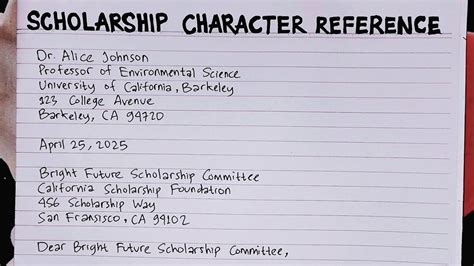 SCHOLARSHIP CHARACTER REFERENCE
Dr. Alice Johnson
Professor of Environmental Science
University of California, Barkeley
123 College Avenue
Barkeley, CA 94720
April 25, 2025
Bright Future Scholarship Committee
California Scholarship Foundation
456 Scholarship Way
San Fransisco, CA 94102
Dear Bright Future Scholarship Committee,